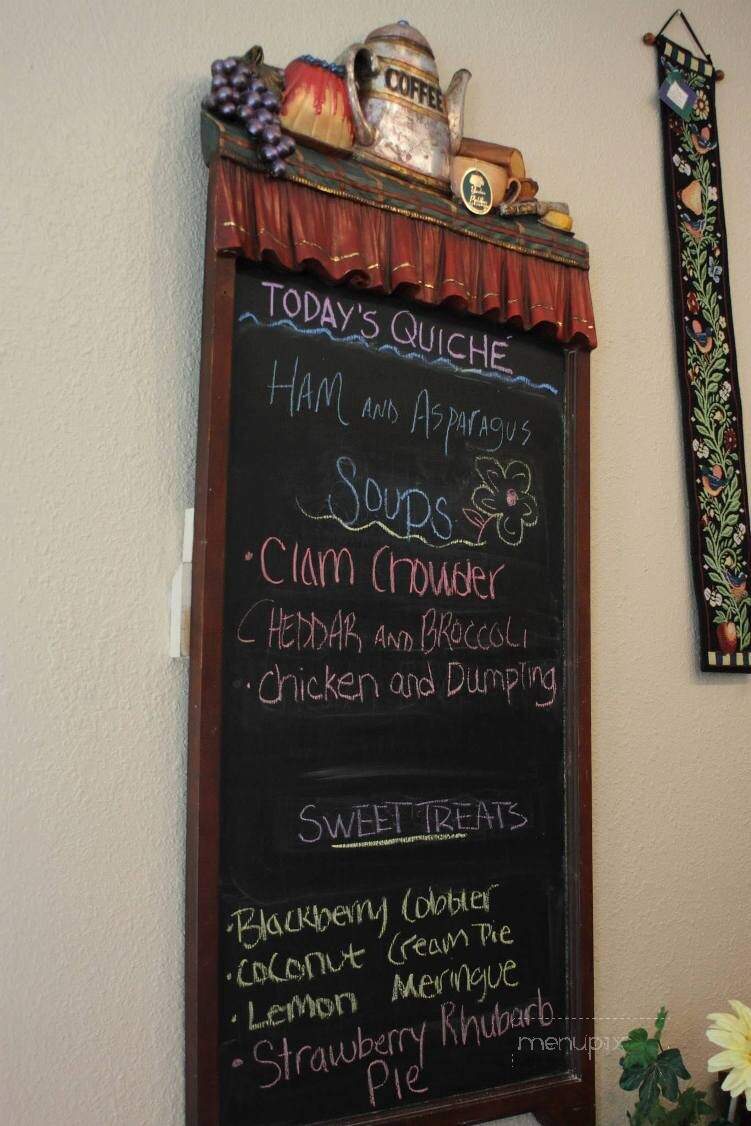 COFFEE
TODAY'S QUICHÉ
HAM AND ASPARAGUS
SOUPS
• Clam Chowder
CHEDDAR AND BROCCOLI
• Chicken and Dumpling
SWEET TREATS
• Blackberry Cobbler
• Coconut Cream Pie
• Lemon Meringue
• Strawberry Rhubarb
Pie
menupix